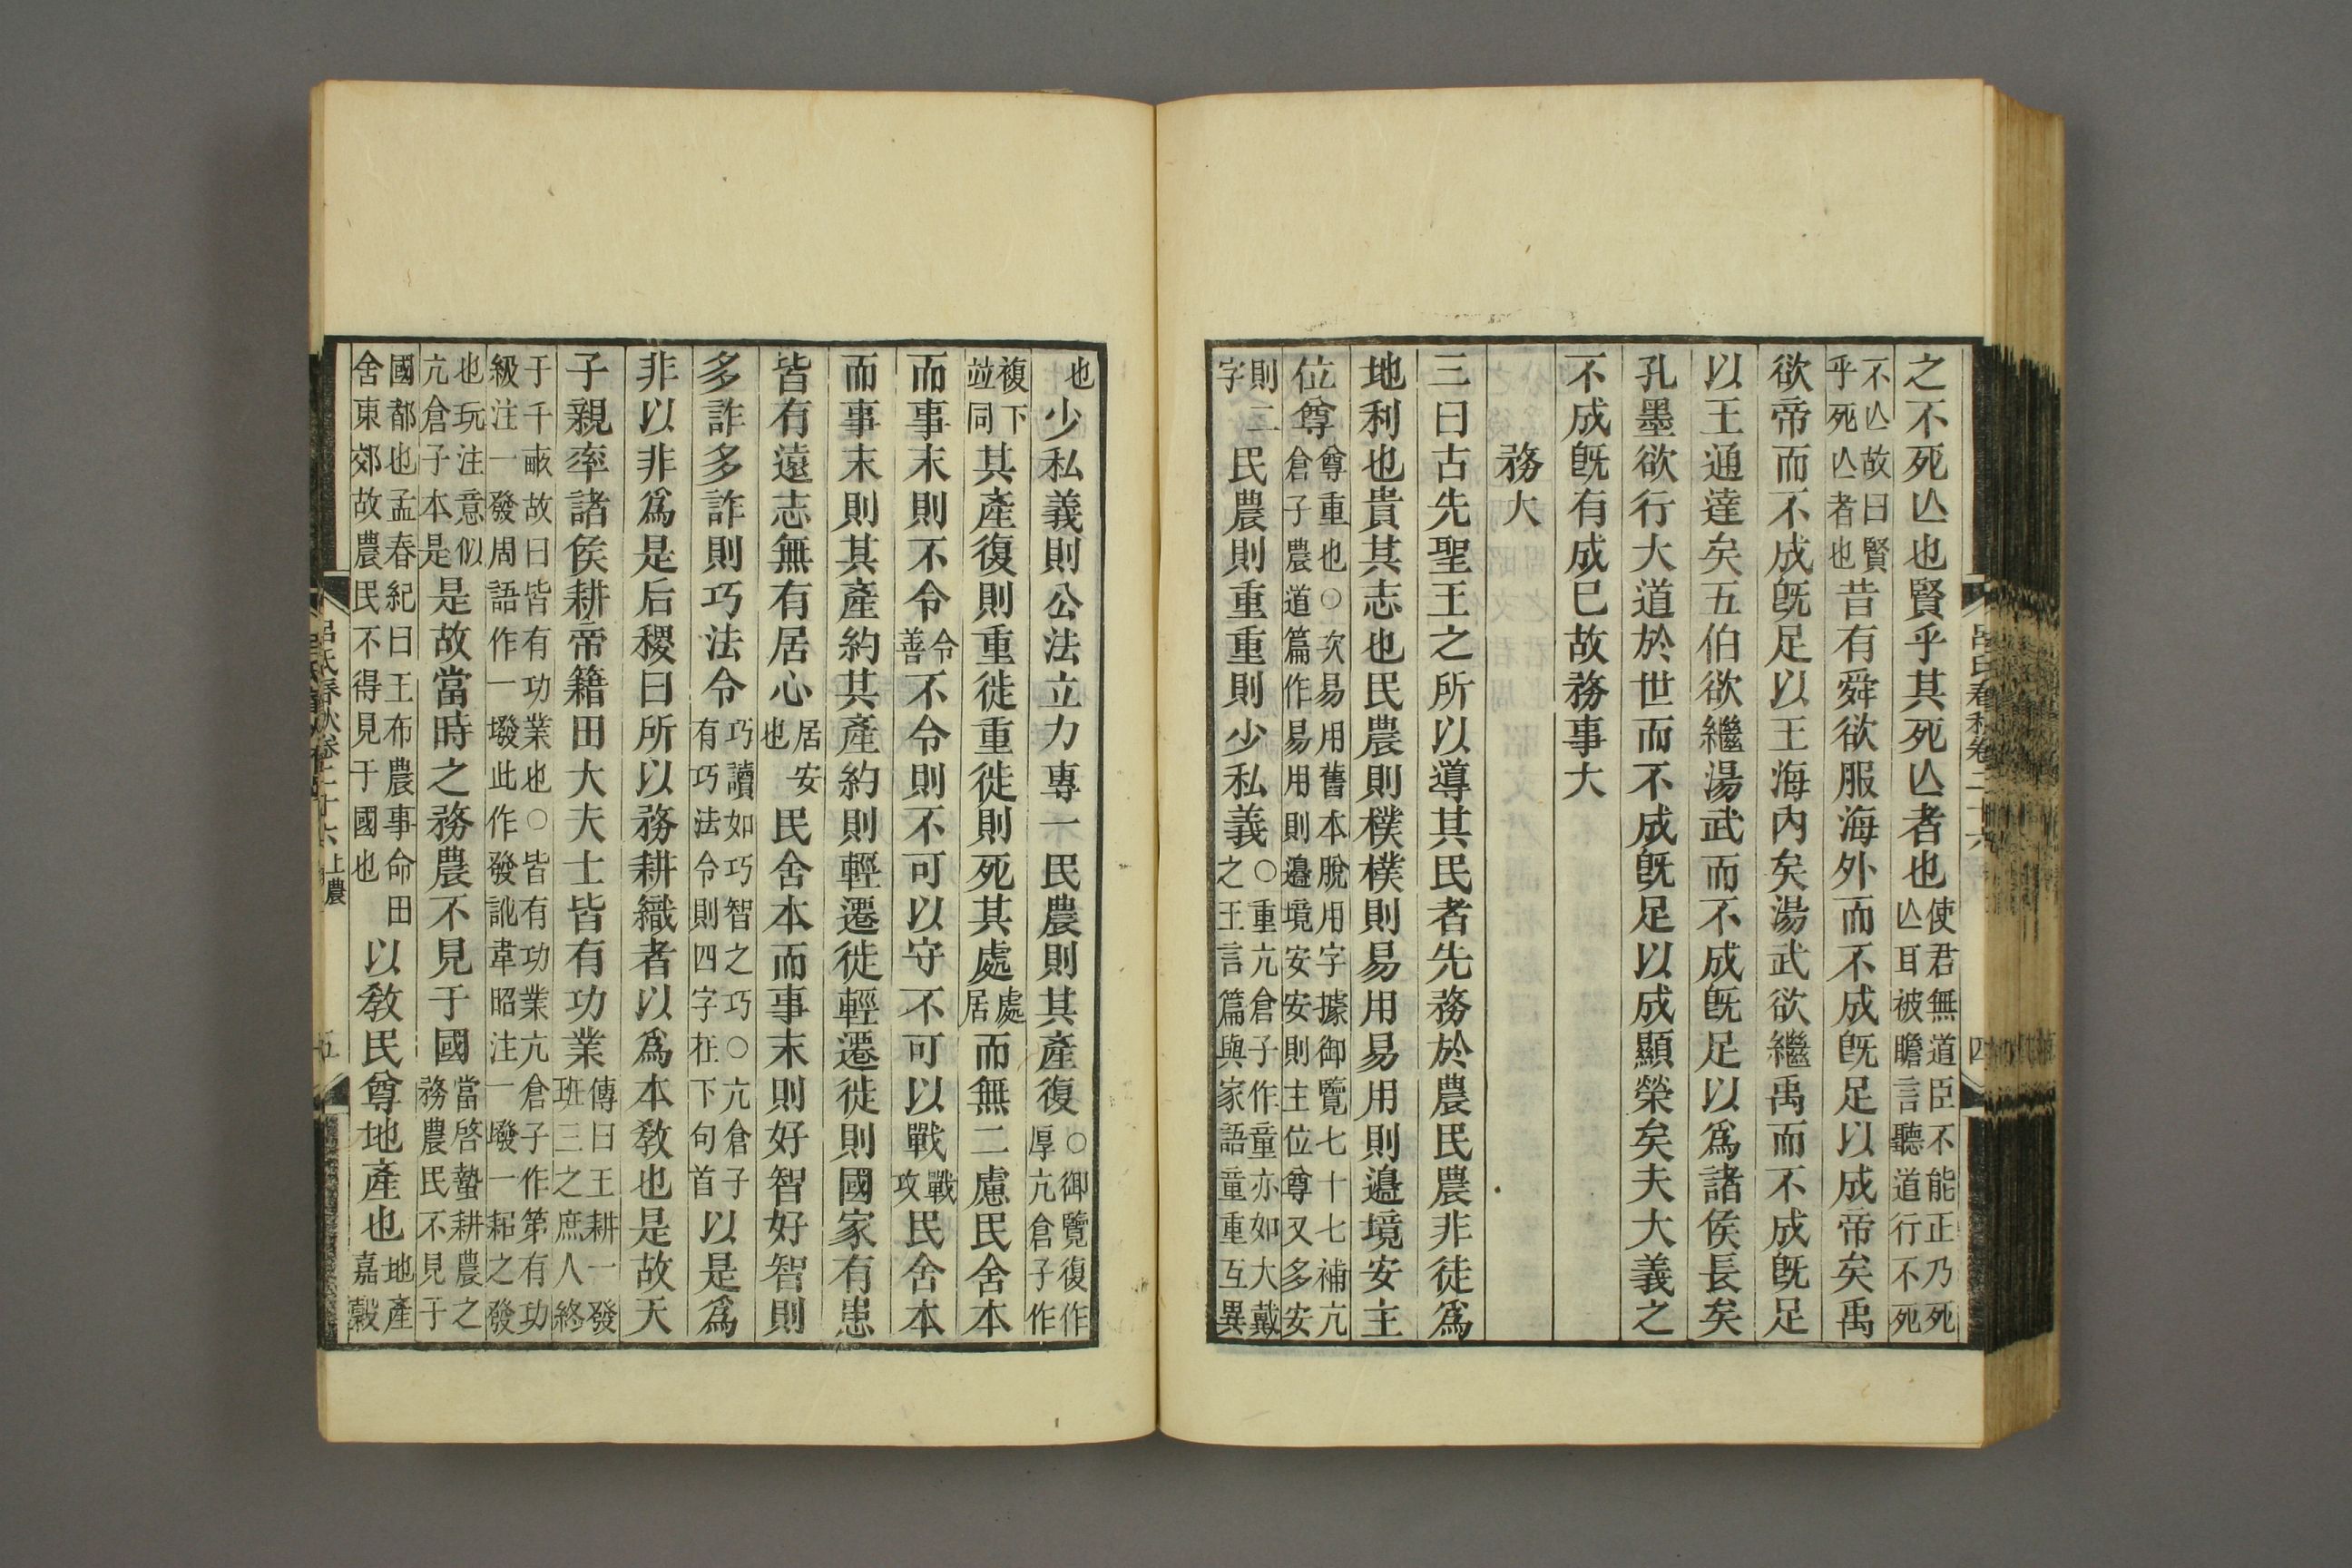 呂氏春秋卷二十六 四
之不死亾也賢乎其死亾者也使君無道臣不能正乃死亾耳被瞻言聽道行不死
不亾故曰賢乎死亾者也昔有舜欲服海外而不成旣足以成帝矣禹
欲帝而不成旣足以王海內矣湯武欲繼禹而不成旣足
以王通達矣五伯欲繼湯武而不成旣足以爲諸侯長矣
孔墨欲行大道於世而不成旣足以成顯榮矣夫大義之
不成旣有成已故務事大
務大
三曰古先聖王之所以導其民者先務於農民農非徒爲
地利也貴其志也民農則樸樸則易用易用則邉境安主
位尊尊重也○次易用舊本脫用字據御覽七十七補亢倉子農道篇作易用則邉境安安則主位尊又多安
則二字民農則重重則少私義○重亢倉子作童亦如大戴之王言篇與家語童重互異
也少私義則公法立力專一民農則其產復○御覽復作厚亢倉子作
複下竝同其產復則重徙重徙則死其處處居而無二慮民舍本
而事末則不令令善不令則不可以守不可以戰戰攻民舍本
而事末則其產約其產約則輕遷徙輕遷徙則國家有患
皆有遠志無有居心居安也民舍本而事末則好智好智則
多詐多詐則巧法令巧讀如巧智之巧○亢倉子有巧法令則四字在下句首以是爲
非以非爲是后稷曰所以務耕織者以爲本敎也是故天
子親率諸侯耕帝籍田大夫士皆有功業傳曰王耕一發班三之庶人終
于千畝故曰皆有功業也○皆有功業亢倉子作第有功級注一發周語作一墢此作發訛韋昭注一墢一耜之發
也玩注意似亢倉子本是是故當時之務農不見于國當啓蟄耕農之務農民不見于
國都也孟春紀曰王布農事命田舍東郊故農民不得見于國也以敎民尊地產也地產嘉穀
呂氏春秋卷二十六 上農 五